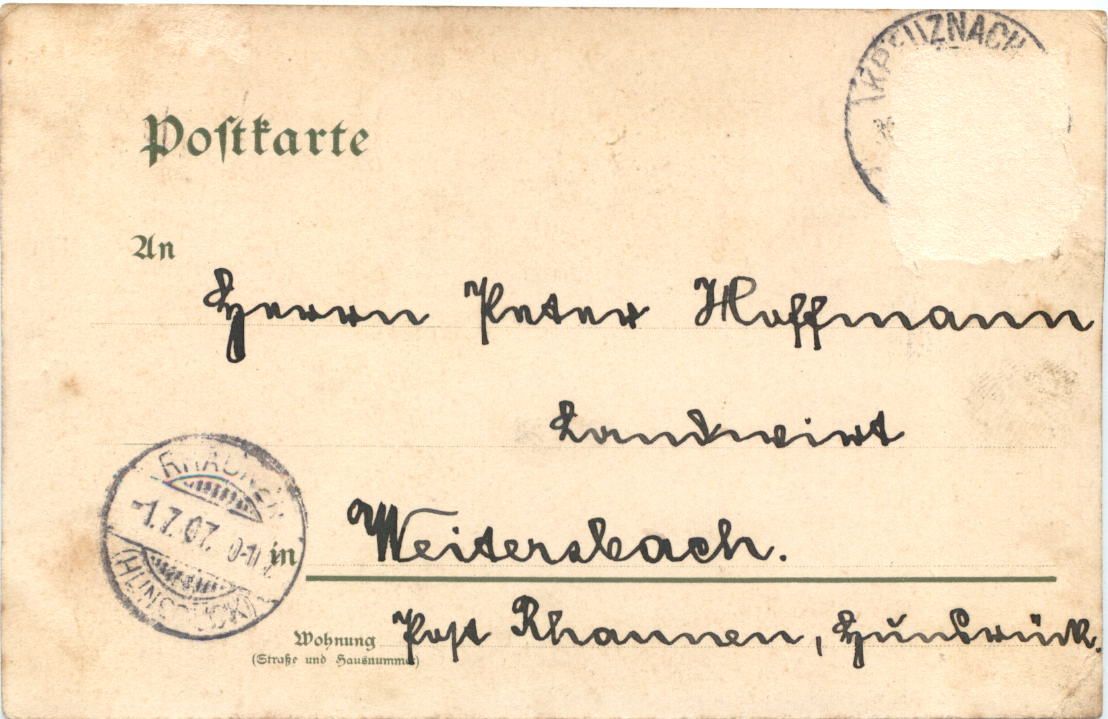 KREUZNACH
Postkarte
An
Herrn Peter Hoffmann
Landwirt
RHAUNEN
-1.7.07.
(HUNSRÜCK)
in Weitersbach.
Wohnung
(Straße und Hausnummer)
Post Rhaunen, Hunsrück.